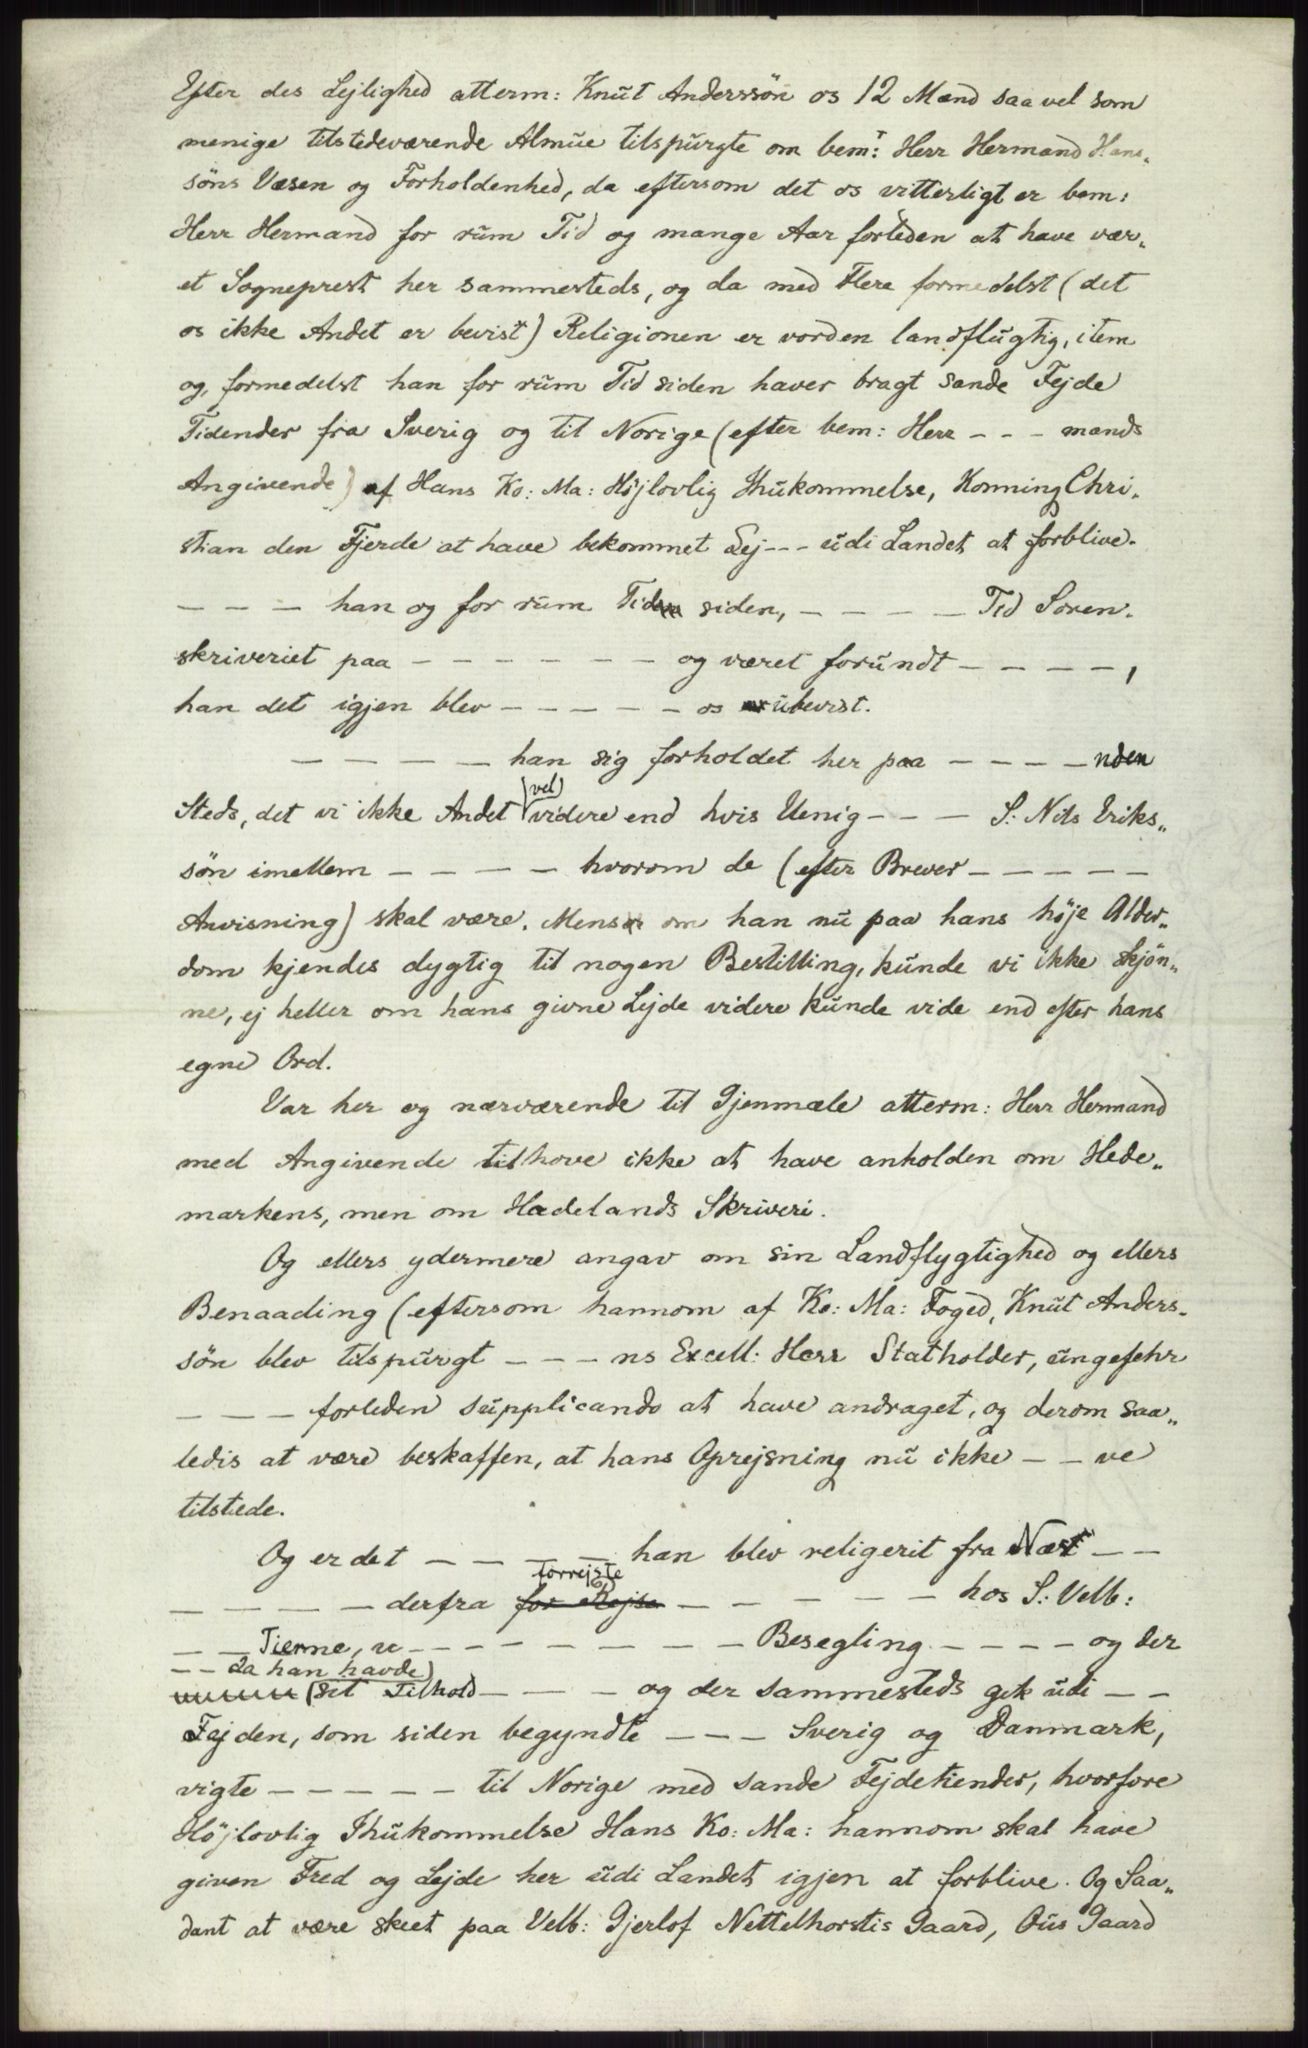 Efter des Lejlighed atterm: Knut Anderssön os 12 Mænd saa vel som
menige tilstedeværende Almue tilspurgte om bemt: Herr Hermand Hans„
söns Væsen og Forholdenhed, da eftersom det os vitterligt er bem:
Herr Hermand for rum Tid og mange Aar forleden at have vær„
et Sogneprest her sammesteds, og da med Flere formedelst (det
os ikke Andet er bevist) Religionen er vorden landflugtig, item
og, formedelst han for rum Tid siden haver bragt sande Fejde
Tidender fra Sverig og til Norige (efter bem: Herr - - - mands
Angivende) af Hans Ko: Ma: Højlovlig Ihukommelse, Konning Chri„
stian den Fjerde at have bekommet Lej - - - udi Landet at forblive.
- - - han og for rum Tid siden, - - - - Tid Soren„
skriveriet paa - - - - - - - og været forundt - - - - -,
han det igjen blev - - - - - os ubevist.
- - - - - han sig forholdet her paa - - - - nden
Steds, det vi ikke Andet (vel) videre end hvis Uenig - - - S: Nils Eriks„
sön imellem - - - - hvorom de (efter Brever - - - - -
Anvisning) skal være. Mens om han nu paa hans höje Alder„
dom kjendes dygtig til nogen Bestilling, kunde vi ikke skjön„
ne, ej heller om hans givne Lejde videre kunde vide end efter hans
egne Ord.
Var her og nærværende til Gjenmæle atterm: Herr Hermand
med Angivende tilhove ikke at have anholden om Hede„
markens, men om Hadelands Skriveri.
Og ellers ydermere angav om sin Landflygtighed og ellers
Benaading (eftersom hannom af Ko: Ma: Foged, Knut Anders„
sön blev tilspurgt - - - ns Excell: Herr Statholder, ungefehr
- - - forleden supplicando at have andraget, og derom saa„
ledis at være beskaffen, at hans Oprejsning nu ikke - - ve
tilstede.
Og er det - - - - - han blev religerit fra Næst - -
- - - - - derfra for Rejse torrejste - - - - - - hos S: Velb:
- - Tierne, u - - - - - - - - - Besegling - - - - og der
- - da han havde)
(sit Tilhold - - - - og der sammesteds gik udi - -
Fejden, som siden begyndte - - - Sverig og Danmark,
vigte - - - - - til Norige med sande Fejdetiender, hvorfore
Höjlovlig Ihukommelse Hans Ko: Ma: hannom skal have
given Fred og Lejde her udi Landet igjen at forblive. Og Saa„
dant at være skeet paa Velb: Gjerlof Nettelhorstis Gaard, Ous Gaard